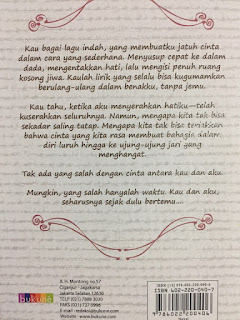 Kau bagai lagu indah, yang membuatku jatuh cinta
dalam cara yang sederhana. Menyusup cepat ke dalam
dada, mengentakkan hati, lalu mengisi penuh ruang
kosong jiwa. Kaulah lirik yang selalu bisa kugumamkan
berulang-ulang dalam benakku, tanpa jemu.
Kau tahu, ketika aku menyerahkan hatiku—telah
kuserahkan seluruhnya. Namun, mengapa kita tak bisa
sekadar saling tatap. Mengapa kita tak bisa
bahwa cinta yang kita rasa membuat bahagia dalam
diri luruh hingga ke ujung-ujung jari yang
menghangat.
Tak ada yang salah dengan cinta antara kau dan aku.
Mungkin, yang salah hanyalah waktu. Kau dan aku,
seharusnya sejak dulu bertemu...
bukune
Jl. H. Montong no.57
Ciganjur - Jagakarsa
Jakarta Selatan 12630
TELP (021) 7888 3030
FAKS (021) 727 0996
ISBN 602-220-040-7
9 786022 200406